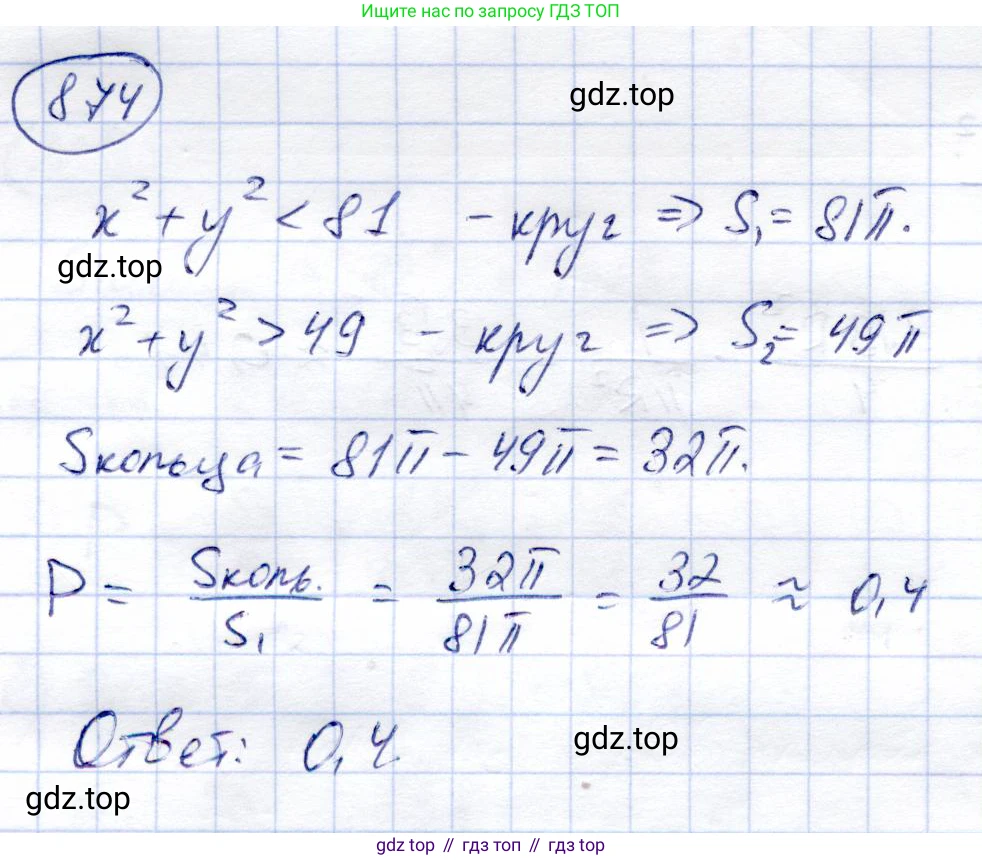 Ищите нас по запросу ГДЗ ТОП
874
gdz.top
x² + y² < 81 - круг => S₁ = 81π.
gdz.top
x² + y² > 49 - круг => S₂ = 49π
Sкольца = 81π - 49π = 32π.
P = Sколь./S₁ = 32π/81π = 32/81 ≈ 0,4
Ответ: 0,4.
gdz.top
gdz.top
gdz top // гдз топ // gdz top